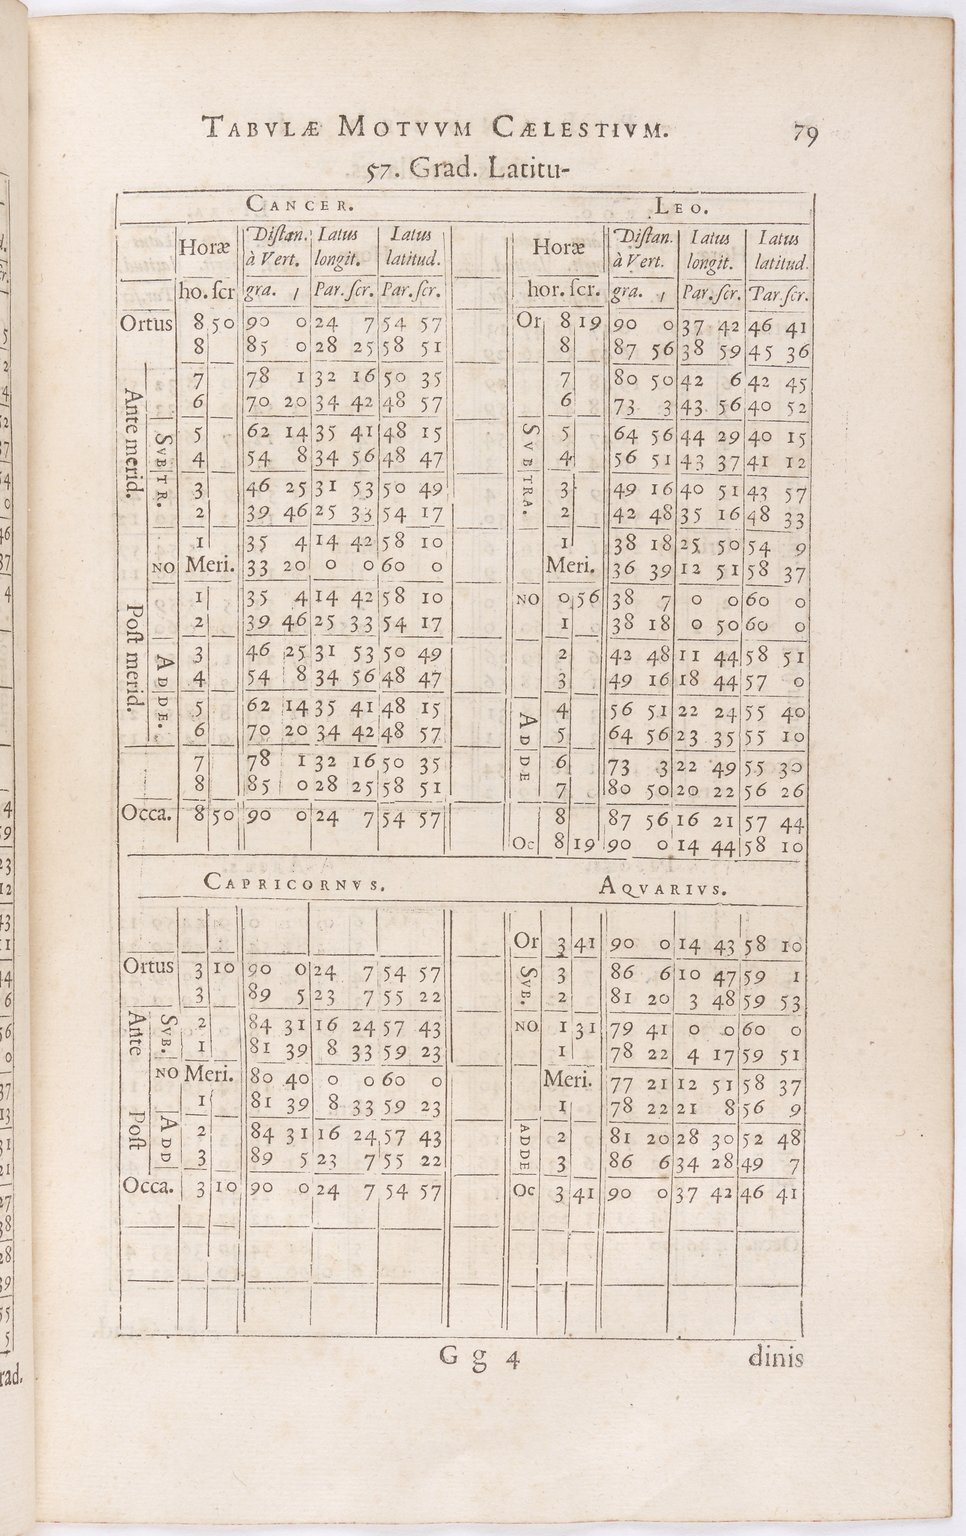 TABVLÆ MOTVVM CÆLESTIVM. 79
57. Grad. Latitu-
CANCER. LEO.
Horæ Distan. à Vert. Latus longit. Latus latitud. Horæ Distan. à Vert. Latus longit. Latus latitud.
ho. scr gra. ′ Par. scr. Par. scr. hor. scr. gra. ′ Par. scr. Par scr.
Ortus 8 50 90 0 24 7 54 57 Or 8 19 90 0 37 42 46 41
8 85 0 28 25 58 51 8 87 56 38 59 45 36
Ante merid. 7 78 1 32 16 50 35 7 80 50 42 6 42 45
6 70 20 34 42 48 57 6 73 3 43 56 40 52
SVBTR. 5 62 14 35 41 48 15 SVBTRA. 5 64 56 44 29 40 15
4 54 8 34 56 48 47 4 56 51 43 37 41 12
3 46 25 31 53 50 49 3 49 16 40 51 43 57
2 39 46 25 33 54 17 2 42 48 35 16 48 33
1 35 4 14 42 58 10 1 38 18 25 50 54 9
NO Meri. 33 20 0 0 60 0 Meri. 36 39 12 51 58 37
Post merid. 1 35 4 14 42 58 10 NO 0 56 38 7 0 0 60 0
2 39 46 25 33 54 17 1 38 18 0 50 60 0
ADDE. 3 46 25 31 53 50 49 2 42 48 11 44 58 51
4 54 8 34 56 48 47 3 49 16 18 44 57 0
5 62 14 35 41 48 15 ADDE 4 56 51 22 24 55 40
6 70 20 34 42 48 57 5 64 56 23 35 55 10
7 78 1 32 16 50 35 6 73 3 22 49 55 30
8 85 0 28 25 58 51 7 80 50 20 22 56 26
Occa. 8 50 90 0 24 7 54 57 8 87 56 16 21 57 44
Oc 8 19 90 0 14 44 58 10
CAPRICORNVS. AQVARIVS.
Or 3 41 90 0 14 43 58 10
Ortus 3 10 90 0 24 7 54 57 SVB. 3 86 6 10 47 59 1
3 89 5 23 7 55 22 2 81 20 3 48 59 53
Ante SVB. 2 84 31 16 24 57 43 NO 1 31 79 41 0 0 60 0
1 81 39 8 33 59 23 1 78 22 4 17 59 51
NO Meri. 80 40 0 0 60 0 Meri. 77 21 12 51 58 37
1 81 39 8 33 59 23 1 78 22 21 8 56 9
Post ADD 2 84 31 16 24 57 43 ADDE 2 81 20 28 30 52 48
3 89 5 23 7 55 22 3 86 6 34 28 49 7
Occa. 3 10 90 0 24 7 54 57 Oc 3 41 90 0 37 42 46 41
G g 4 dinis